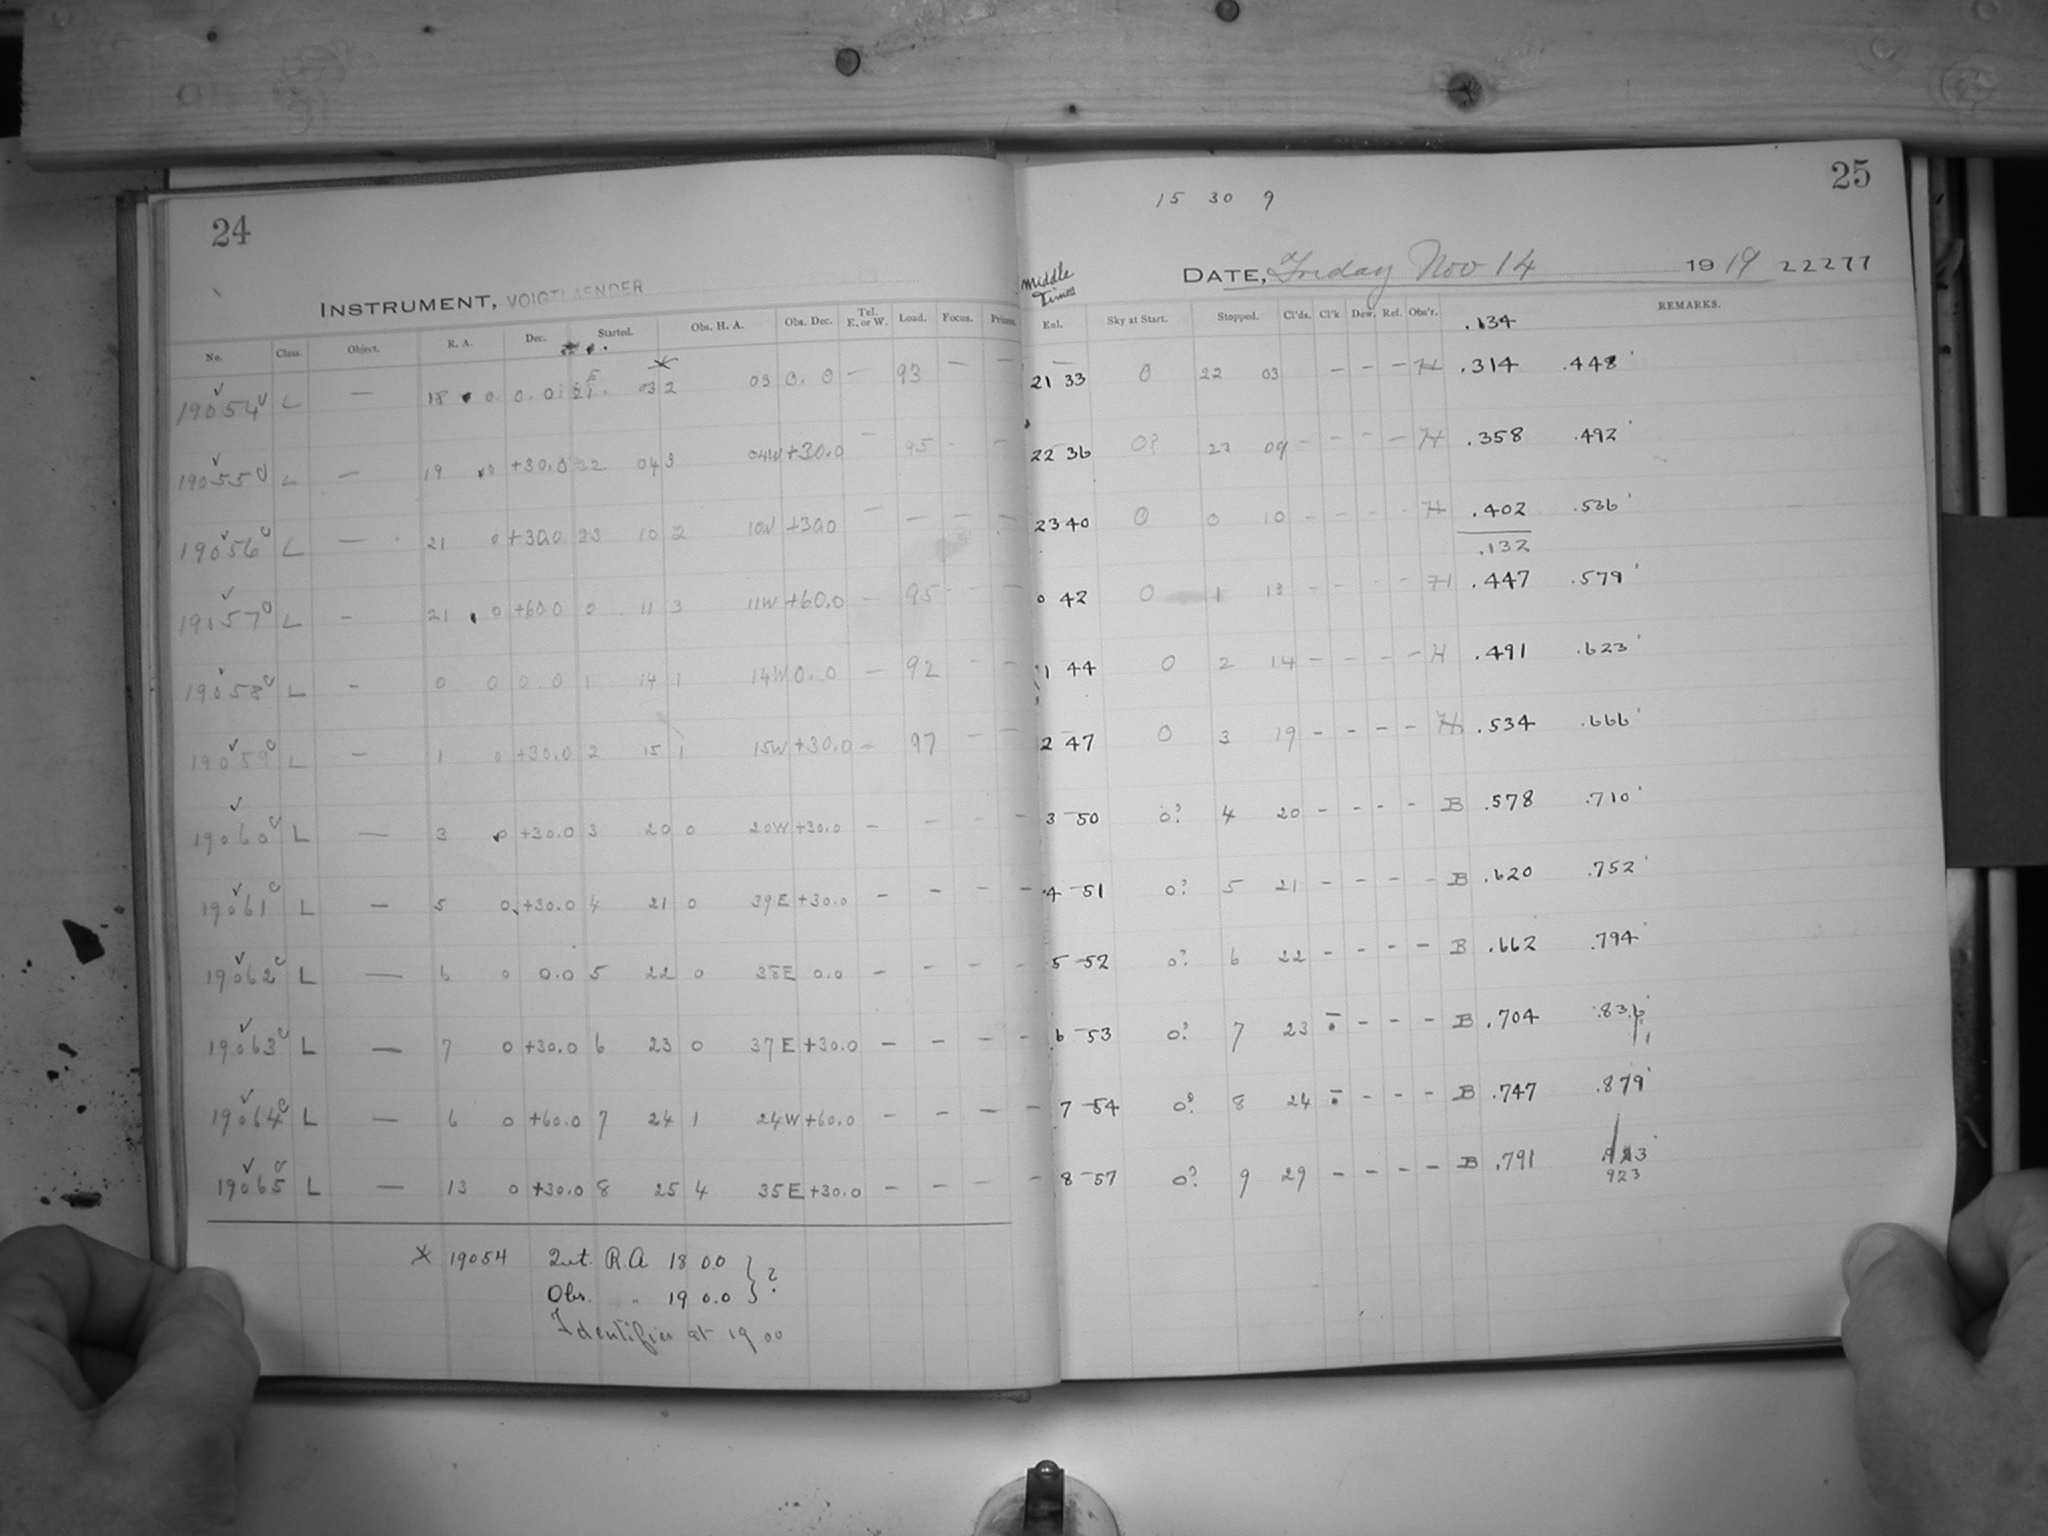 24
INSTRUMENT, VOIGTLAENDER
No. Class. Object. R. A. Dec. Started. Obs. H. A. Obs. Dec. Tel. E. or W. Load. Focus. Prism.
19054 L — 18 0 0.0 21 03 2 03 0.0 — 93 — —
19055 L — 19 0 +30.0 22 04 3 04W +30.0 — 95 - —
19056 L — 21 0 +30.0 23 10 2 10W +30.0 — — — —
19057 L - 21 0 +60.0 0 11 3 11W +60.0 — 95 - —
19058 L - 0 0 0.0 1 14 1 14W 0.0 — 92 - —
19059 L — 1 0 +30.0 2 15 1 15W +30.0 — 97 - —
19060 L — 3 0 +30.0 3 20 0 20W +30.0 — - - -
19061 L — 5 0 +30.0 4 21 0 39E +30.0 - - - -
19062 L — 6 0 0.0 5 22 0 38E 0.0 - - - -
19063 L — 7 0 +30.0 6 23 0 37E +30.0 - - - -
19064 L — 6 0 +60.0 7 24 1 24W +60.0 - - - -
19065 L — 13 0 +30.0 8 25 4 35E +30.0 - - - -
* 19054 Int. R.A 18 0.0 } ?
Obs. " 19 0.0
Identifies at 19 00
25
15 30 9
DATE, Friday Nov 14 1919 22277
Middle Times
Enl. Sky at Start. Stopped. Cl'ds. Cl'k Dew. Ref. Obs'r. REMARKS.
.134
21 33 0 22 03 - - - H .314 .448
22 36 0? 23 09 - - - - H .358 .492
23 40 0 0 10 - - - - H .402 .536
.132
0 42 0 1 13 - - - - H .447 .579
1 44 0 2 14 - - - - H .491 .623
2 47 0 3 19 - - - - H .534 .666
3 50 0? 4 20 - - - - B .578 .710
4 51 0? 5 21 - - - - B .620 .752
5 52 0? 6 22 - - - - B .662 .794
6 53 0? 7 23 - - - - B .704 .836
7 54 0? 8 24 - - - - B .747 .879
8 57 0? 9 29 - - - - B .791
923